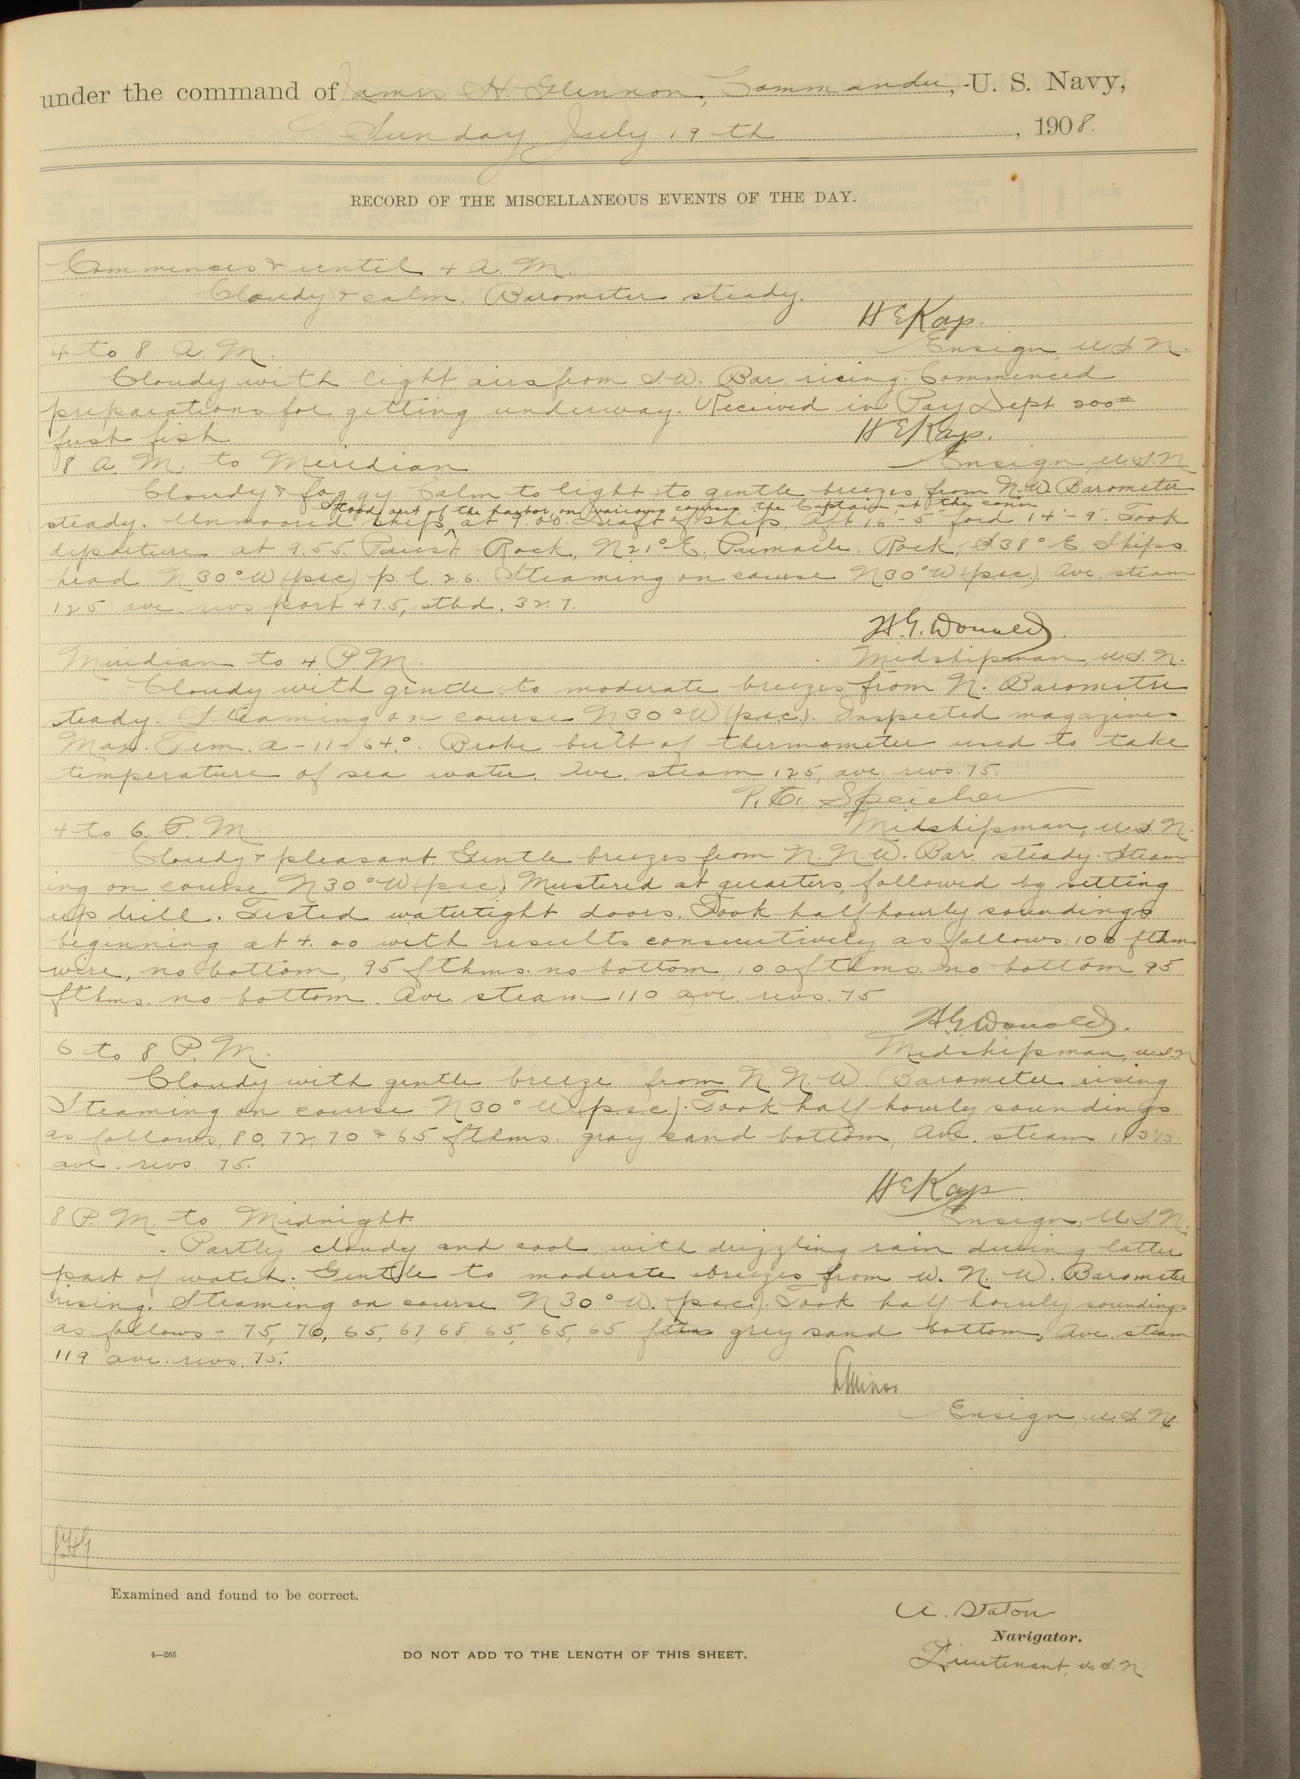 under the command of James H. Glennon, Commander, U. S. Navy,
Sunday July 19th, 1908.
RECORD OF THE MISCELLANEOUS EVENTS OF THE DAY.
Commences & until 4 A. M.
Cloudy & calm. Barometer steady.
H E Kays.
Ensign, U.S.N.
4 to 8 A. M.
Cloudy with light airs from S.W. Bar. rising. Commenced
preparations for getting underway. Received in Pay Dept 200#
fresh fish
H E Kays.
Ensign, U.S.N.
8 A. M. to Meridian
Cloudy & foggy. Calm to light to gentle breezes from N.W. Barometer
Stood out of the harbor on various courses the Captain at the conn
steady. Unmoored ship at 9.00. Draft of ship, aft 16'-5" for'd 14'-9". Took
departure at 9.55. Rock, N21°E, Pinnacle Rock, S38°E, Ships
head N30°W (psc) p. l. 2.6. Steaming on course N30°W (psc.) Ave. steam
125 ave. revs port 47.5, stbd. 32.7.
H.G. Donald.
Midshipman, U.S.N.
Meridian to 4 P.M.
Cloudy with gentle to moderate breezes from N. Barometer
steady. Steaming on course N30°W (psc.). Inspected magazines
Max. Tem. A-11-64°. Broke bulb of thermometer used to take
temperature of sea water. Ave. steam 125, ave. revs. 75.
R. C. Speicher
Midshipman, U.S.N.
4 to 6 P. M.
Cloudy & pleasant. Gentle breezes from N.N.W. Bar. steady. Steam-
ing on course N30°W (psc.) Mustered at quarters, followed by setting
up drill. Tested watertight doors. Took half hourly soundings
beginning at 4.00 with results consecutively as follows; 100 fthms
wire, no bottom, 95 fthms. no bottom, 100 fthms. no bottom, 95
fthms. no bottom. Ave. steam 110 ave. revs. 75
H.G. Donald.
Midshipman, U.S.N
6 to 8 P. M.
Cloudy with gentle breeze from N N. W. Barometer rising
Steaming on course N30°W (psc.). Took half hourly soundings
as follows, 80, 72, 70 & 65 fthms. gray sand bottom, Ave. steam
ave. revs. 75.
H E Kays.
Ensign, U.S.N.
8 P. M. to Midnight.
Partly cloudy and cool with drizzling rain during latter
part of watch. Gentle to moderate breezes from W. N. W. Barometer
rising. Steaming on course N30°W. (psc.). Took half hourly soundings
as follows - 75, 70, 65, 67, 68, 65, 65, 65 fthms grey sand bottom. Ave. steam
119 ave. revs. 75.
Minor
Ensign, U.S.N.
JHG
Examined and found to be correct.
A. Staton
Navigator.
Lieutenant, U.S.N.
4—265
DO NOT ADD TO THE LENGTH OF THIS SHEET.